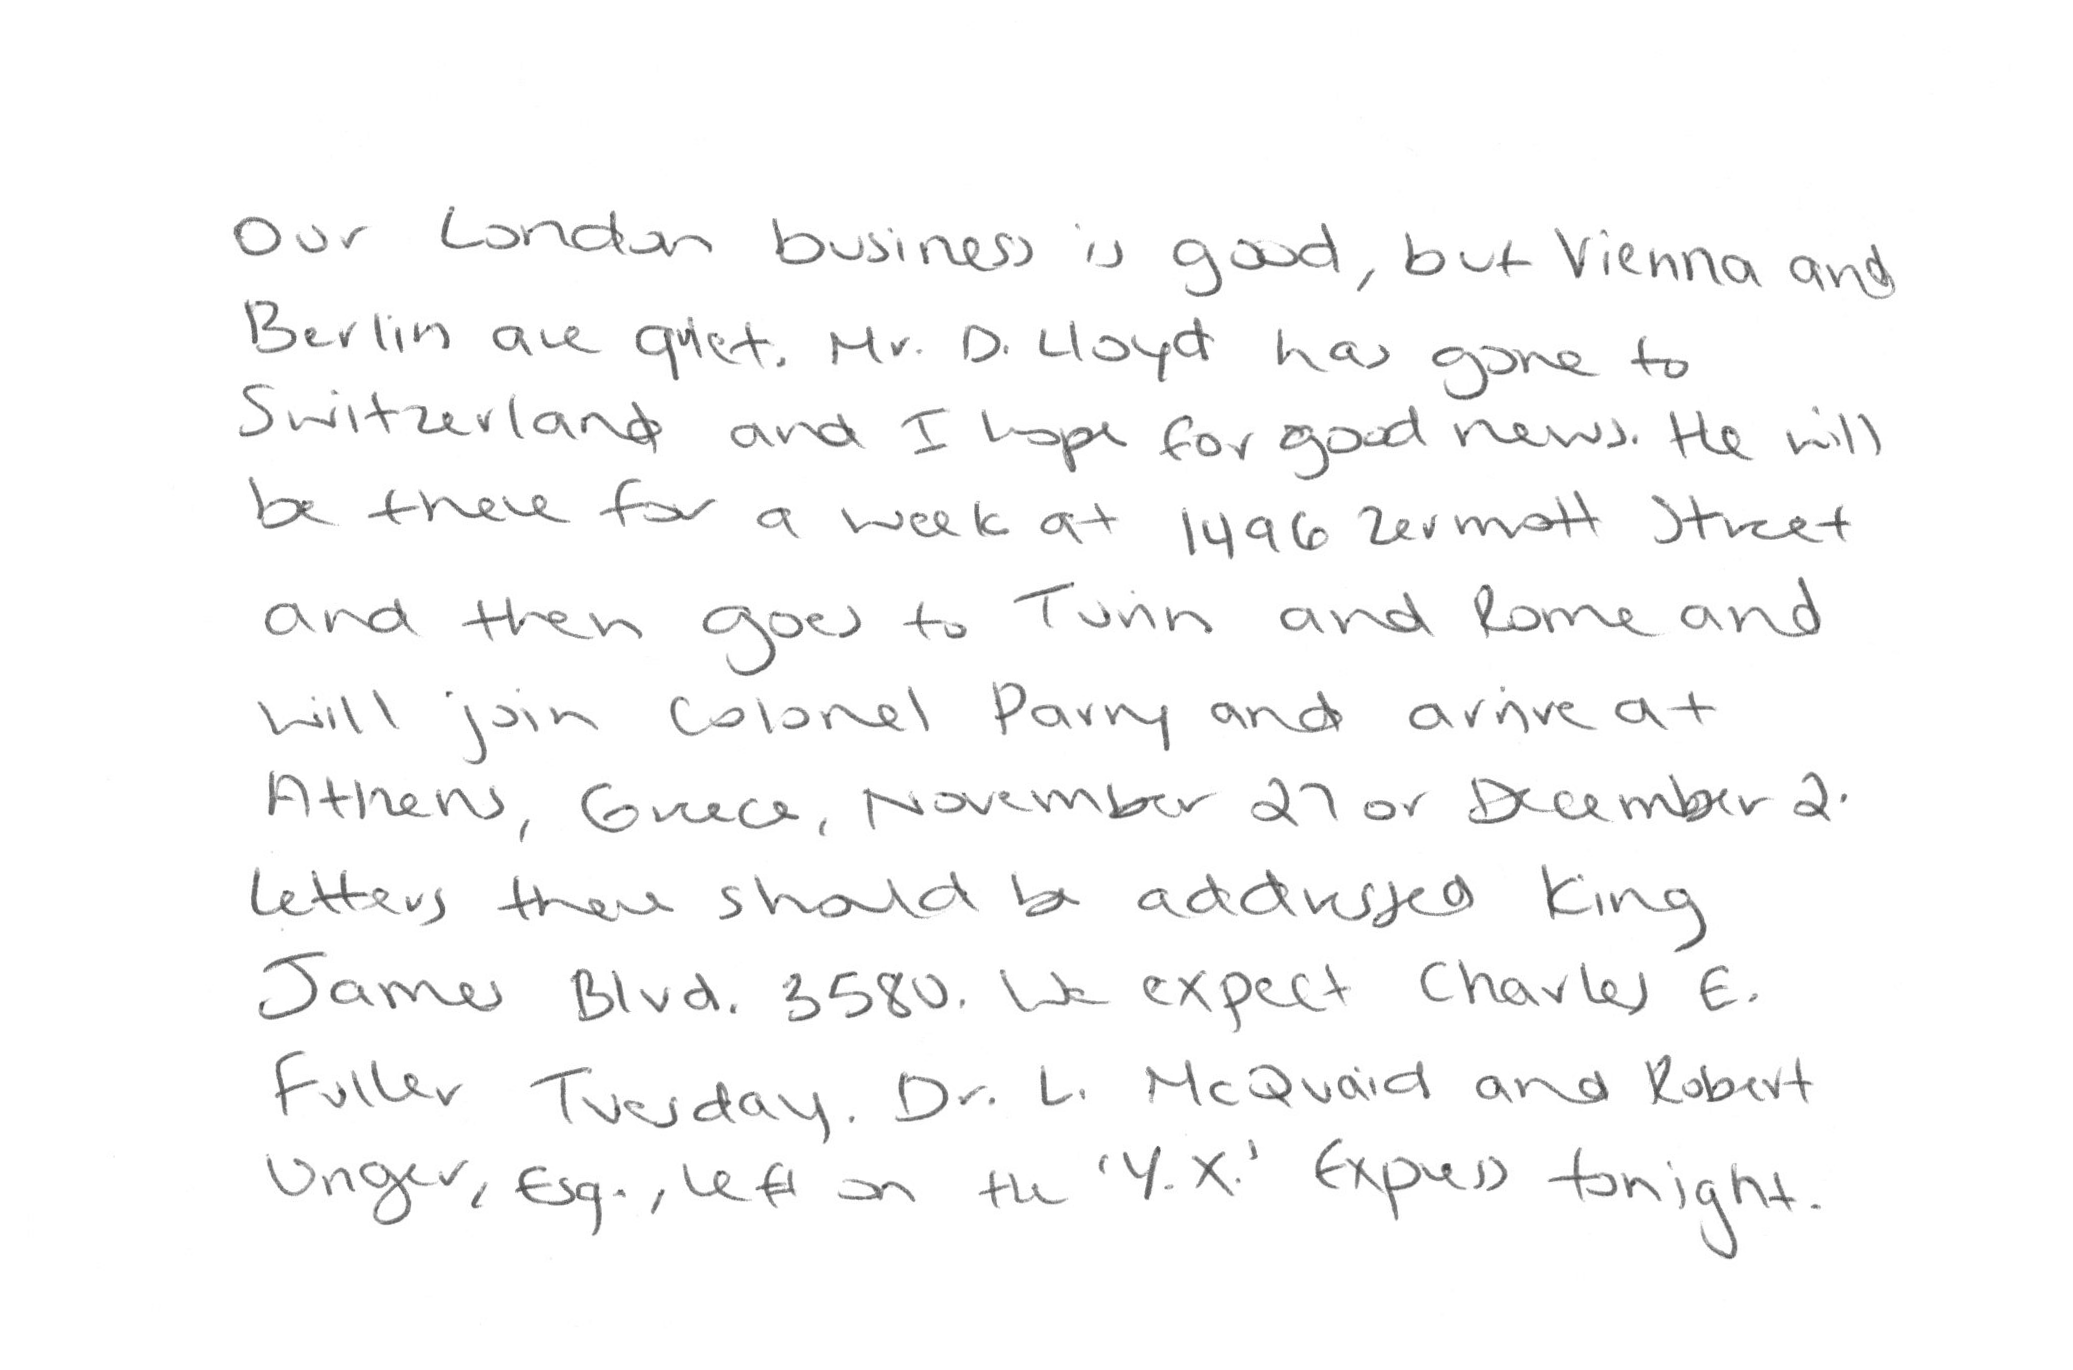 Our London business is good, but Vienna and
Berlin are quiet. Mr. D. Lloyd has gone to
Switzerland and I hope for good news. He will
be there for a week at 1496 Zermott Street
and then goes to Turin and Rome and
will join Colonel Parry and arrive at
Athens, Greece, November 27 or December 2.
Letters there should be addressed King
James Blvd. 3580. We expect Charles E.
Fuller Tuesday. Dr. L. McQuaid and Robert
Unger, Esq., left on the 'Y.X.' Express tonight.